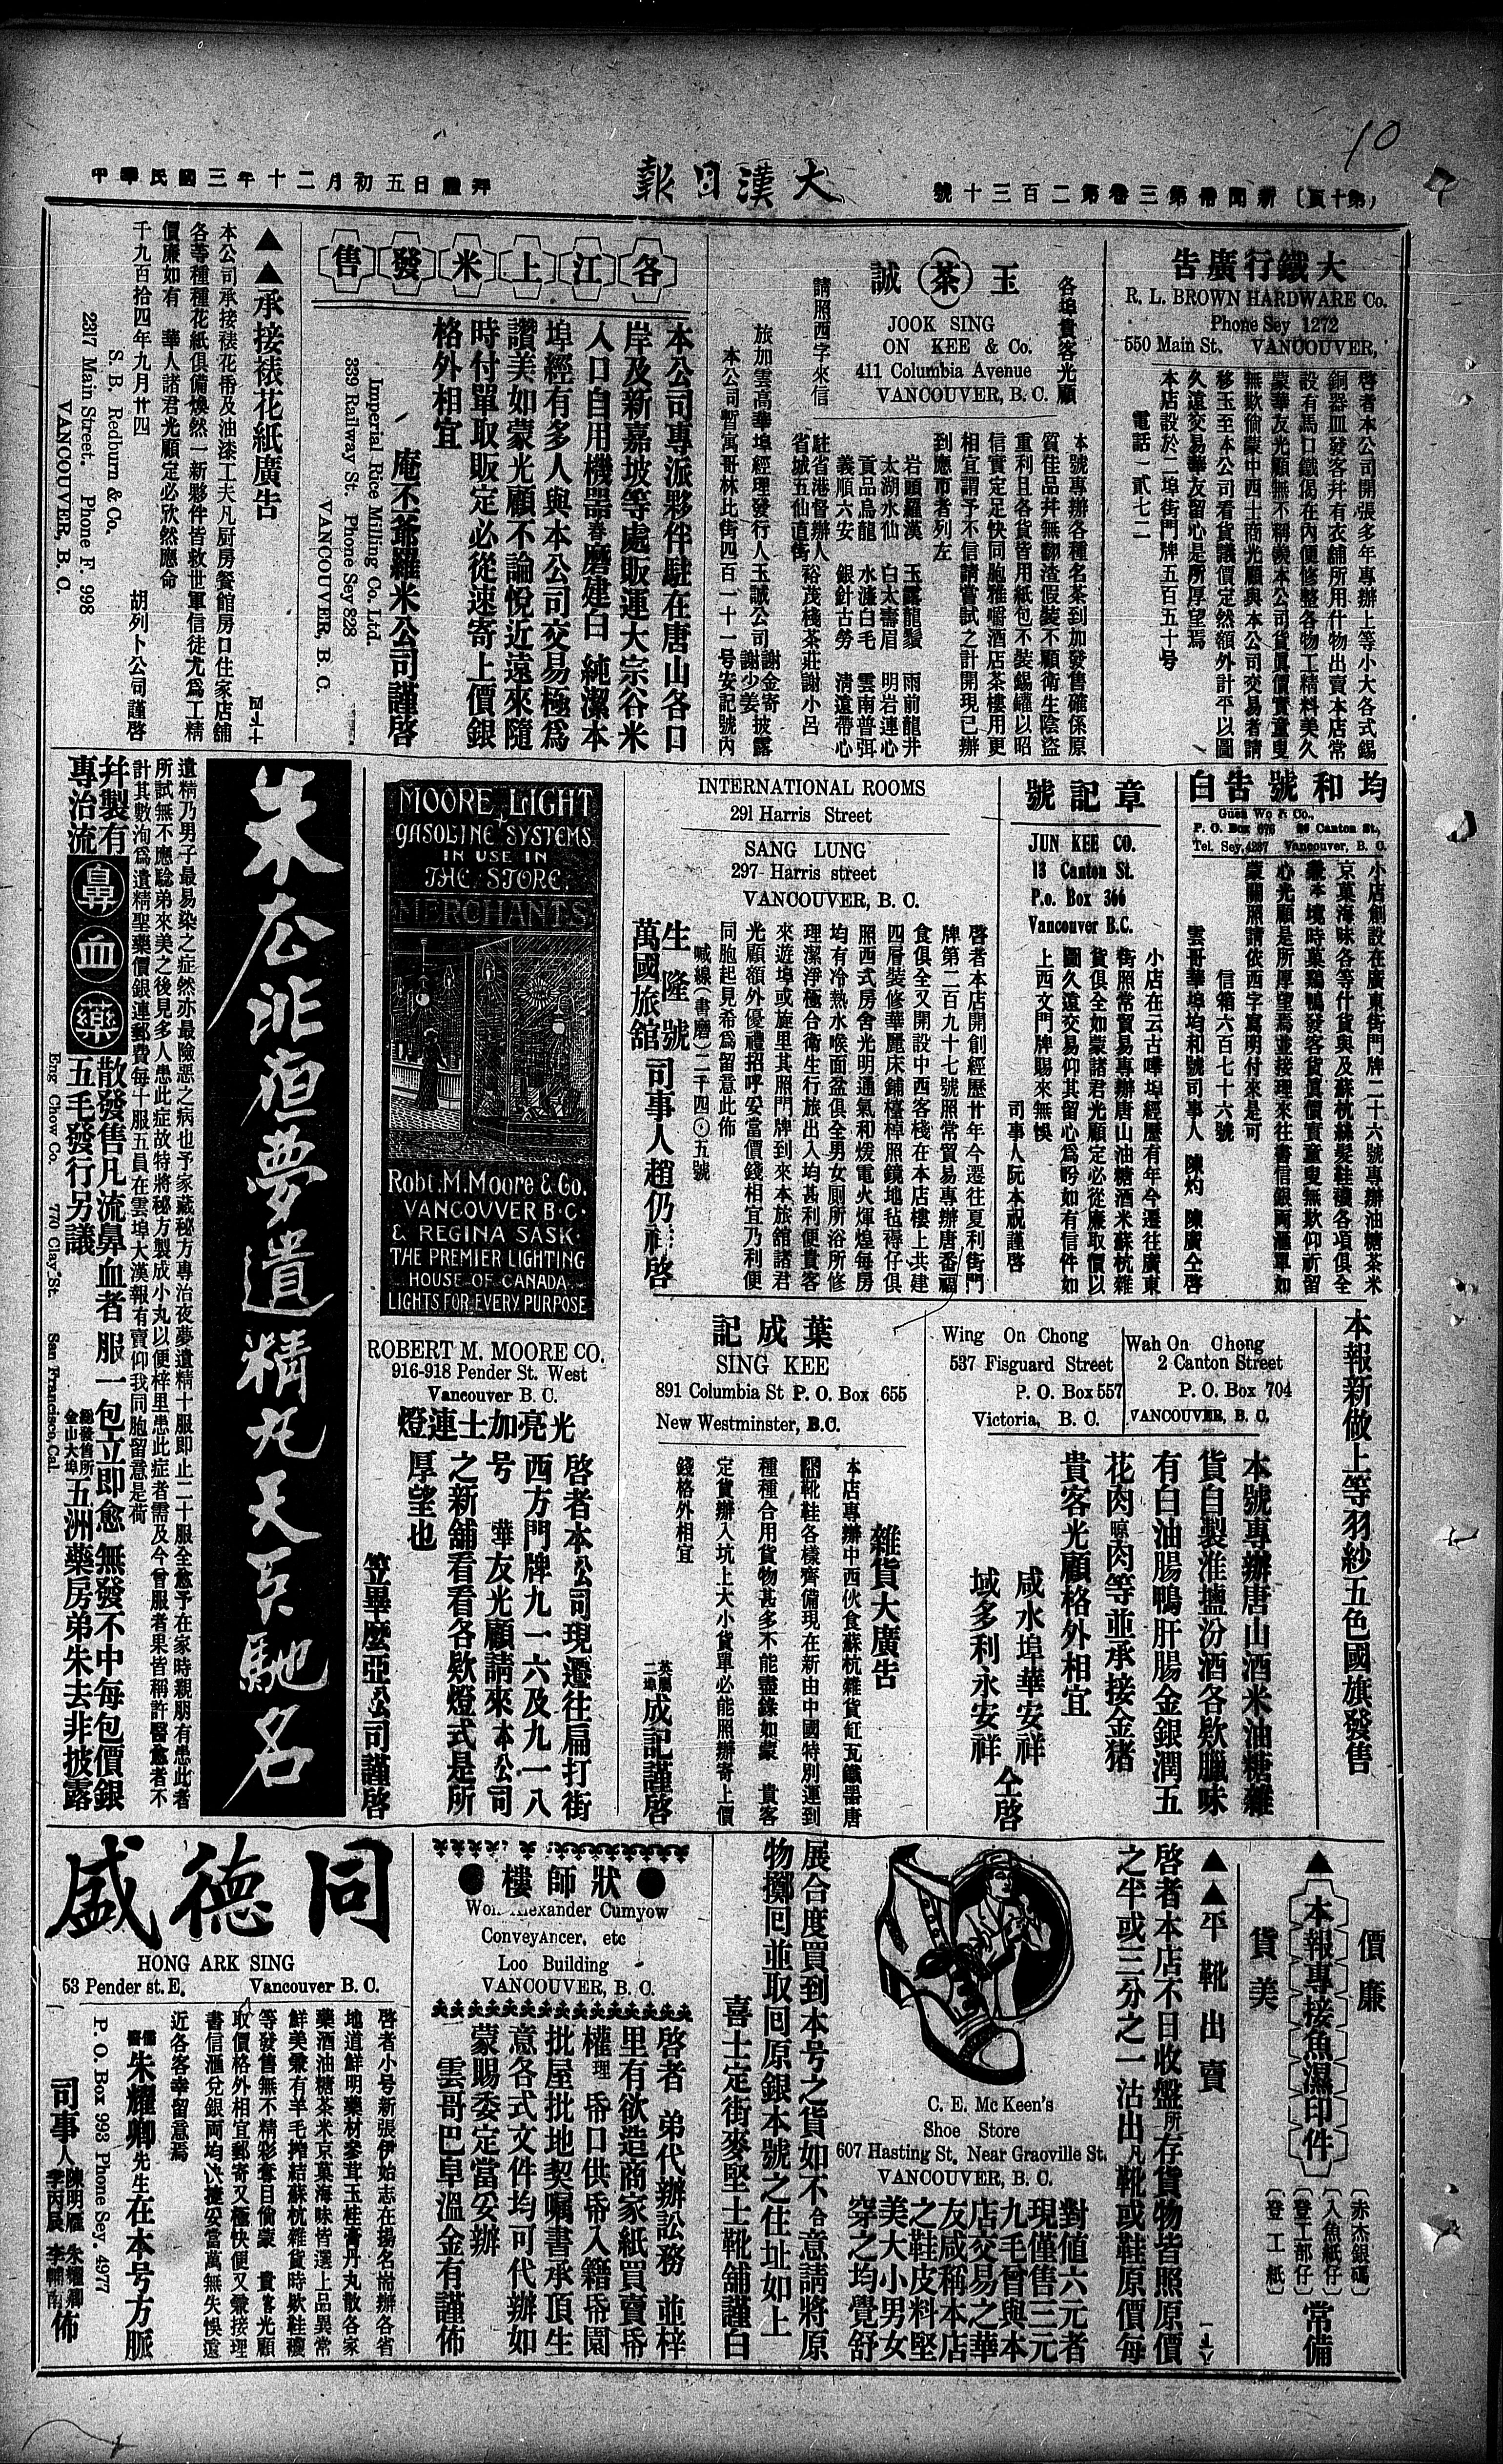 10
(第十頁) 新聞帋第三卷第二百三十號
大漢日報
中華民國三年十二月初五日 拜禮
大鐵行廣告
R. L. BROWN HARDWARE Co.
Phone Sey 1272
550 Main St. VANCOUVER,
啓者本公司開張多年專辦上等小大各式錫
銅器皿發客幷有衣舖所用什物出賣本店常
設有馬口鐵偈在內便修整各物工精料美久
蒙華友光顧無不稱羨本公司貨眞價實童叟
無欺倘蒙中西士商光顧與本公司交易者請
移玉至本公司看貨議價定然額外計平以圖
久遠交易華友留心是所厚望焉
本店設於二埠街門牌五百五十号
電話 一貳七二
各埠貴客光顧
玉茶誠
JOOK SING
ON KEE & Co.
411 Columbia Avenue
VANCOUVER, B. C.
請照西字來信
本號專辦各種名茶到加發售確係原
質佳品幷無翻渣假裝不顧衛生陰盜
重利且各貨皆用紙包不裝錫罐以昭
信實定足快同胞雅嚼酒店茶樓用更
相宜謂予不信請嘗試之計開現已辦
到應市者列左
岩頭羅漢 玉露龍鬚 雨前龍井
太湖水仙 白太壽眉 明岩連心
貢品烏龍 水濂白毛 雲南普弭
義順六安 銀針古勞 清遠帶心
駐省港督辦人
省城五仙直街 裕茂棧茶莊謝小呂
旅加雲高華埠經理發行人玉誠公司 謝金寄 謝少姜 披露
本公司暫寓哥林比街四百一十一号安記號內
各江上米發售
本公司專派夥伴駐在唐山各口
岸及新嘉坡等處販運大宗谷米
入口自用機器舂磨建白 純潔本
埠經有多人與本公司交易極爲
讚美如蒙光顧不論悅近遠來隨
時付單取販定必從速寄上價銀
格外相宜
庵丕爺羅米公司謹啓
Imperial Rice Milling Co. Ltd.
339 Railway St. Phone Sey 828
VANCOUVER, B. C.
▲▲承接裱花紙廣告
本公司承接裱花帋及油漆工夫凡厨房餐館房口住家店舖
各等種種花紙俱備煥然一新夥伴皆救世軍信徒尤爲工精
價廉如有 華人諸君光顧定必欣然應命
千九百拾四年九月廿四 胡列卜公司謹啓
S. B. Redburn & Co.
2317 Main Street. Phone F. 998
VANCOUVER, B. C.
均和號告白
Guen Wo & Co.,
P. O. Box 676 26 Canton St.,
Tel. Sey, 4267 Vancouver, B. C.
小店創設在廣東街門牌二十六號專辦油糖茶米
京菓海味各等什貨與及蘇杭絲髮鞋襪各項俱全
心光顧是所厚望焉並接理來往書信銀両滙單如
蒙關照請依西字寫明付來是可
信箱六百七十六號
雲哥華埠均和號司事人 陳灼 陳廣 仝啓
章記號
JUN KEE CO.
13 Canton St.
P.o. Box 366
Vancouver B.C.
小店在云古嘩埠經歷有年今遷往廣東
街照常貿易專辦唐山油糖酒米蘇杭雜
貨俱全如蒙諸君光顧定必從廉取價以
圖久遠交易仰其留心爲吟如有信件如
上西文門牌賜來無悞
司事人阮本祝謹啓
INTERNATIONAL ROOMS
291 Harris Street
SANG LUNG
297 Harris street
VANCOUVER, B. C.
啓者本店開創經歷廿年今遷往夏利街門
牌第二百九十七號照常貿易專辦唐番福
食俱全又開設中西客棧在本店樓上共建
四層裝修華麗床鋪檯棹照鏡地毡褥仔俱
照西式房舍光明通氣和煖電火煇煌每房
均有冷熱水喉面盆俱全男女厠所浴所修
理潔淨極合衛生行旅出入均甚利便貴客
來遊埠或旋里其照門牌到來本旅舘諸君
光顧額外優禮招呼妥當價錢相宜乃利便
同胞起見希爲留意此佈
喊線(書磨)二千四〇五號
生隆號
萬國旅舘 司事人趙仍祥啓
MOORE LIGHT
GASOLINE SYSTEMS
IN USE IN
THE STORE
MERCHANTS
Robt. M. Moore & Co.
VANCOUVER B·C·
& REGINA SASK·
THE PREMIER LIGHTING
HOUSE OF CANADA
LIGHTS FOR EVERY PURPOSE
ROBERT M. MOORE CO.
916-918 Pender St. West
Vancouver B. C.
光亮加士連燈
啓者本公司現遷往扁打街
西方門牌九一六及九一八
号 華友光顧請來本公司
之新舖看看各欵燈式是所
厚望也
笠畢麼亞公司謹啓
朱去非夜夢遺精丸天下馳名
遺精乃男子最易染之症然亦最險惡之病也予家藏秘方專治夜夢遺精十服即止二十服全愈予在家時親朋有患此者
所試無不應騐弟來美之後見多人患此症故特將秘方製成小丸以便梓里患此症者需及今曾服者果皆稱許醫愈者不
計其數洵爲遺精聖藥價銀連郵費每十服五員在雲埠大漢報有賣仰我同胞留意是荷
幷製有
專治流 鼻血藥 散發售凡流鼻血者 服一包立即愈 無發不中每包價銀
五毛發行另議 總發售所 金山大埠 五洲藥房弟朱去非披露
Eng Chow Co. 770 Clay St. San Francisco, Cal.
本報新做上等羽紗五色國旗發售
Wah On Chong
2 Canton Street
P. O. Box 704
VANCOUVER, B. C.
Wing On Chong
537 Fisguard Street
P. O. Box 557
Victoria, B. C.
本號專辦唐山酒米油糖雜
貨自製淮搵汾酒各欵臘味
有白油腸鴨肝腸金銀潤五
花肉 晾肉等並承接金猪
貴客光顧格外相宜
咸水埠華安祥
域多利永安祥 仝啓
葉成記
SING KEE
891 Columbia St P. O. Box 655
New Westminster, B.C.
雜貨大廣告
本店專辦中西伙食蘇杭雜貨缸瓦鐵器唐
靴鞋各樣齊備現在新由中國特別運到
種種合用貨物甚多不能盡錄如蒙 貴客
定貨辦入坑上大小貨單必能照辦寄上價
錢格外相宜
英屬二埠 成記謹啓
▲價廉
本報專接魚濕印件
貨美
(赤杰銀碼)
(入魚紙仔)
(登工部仔)
(登工紙)
常備
▲▲平靴出賣
啓者本店不日收盤所存貨物皆照原價
之半或三分之一沽出凡靴或鞋原價每
對値六元者
現僅售三元
九毛曾與本
店交易之華
友咸稱本店
之鞋皮料堅
美大小男女
穿之均覺舒
C. E. Mc Keen's
Shoe Store
607 Hasting St. Near Graoville St.
VANCOUVER, B. C.
展合度買到本号之貨如不合意請將原
物擲回並取回原銀本號之住址如上
喜士定街麥堅士靴舖謹白
●狀師樓●
Won Alexander Cumyow
Conveyancer, etc
Loo Building
VANCOUVER, B. C.
啓者 弟代辦訟務 並梓
里有欲造商家紙買賣帋
權理 帋口供帋入籍帋園
批屋批地契囑書承頂生
意各式文件均可代辦如
蒙賜委定當妥辦
雲哥巴阜溫金有謹佈
同德盛
HONG ARK SING
53 Pender st. E. Vancouver B. C.
啓者小号新張伊始志在揚名耑辦各省
地道鮮明藥材參茸玉桂膏丹丸散各家
藥酒油糖茶米京菓海味皆選上品異常
鮮美兼有羊毛搾結蘇杭雜貨時欵鞋襪
等發售無不精彩奪目倘蒙 貴客光顧
取價格外相宜郵寄又極快便又兼接理
書信滙兌銀両均快捷妥當萬無失悞遠
近各客幸留意焉
儒醫 朱耀卿先生在本号方脈
P. O. Box 993 Phone Sey. 4977
司事人 陳明雁 朱耀卿 李丙辰 李輔南 佈